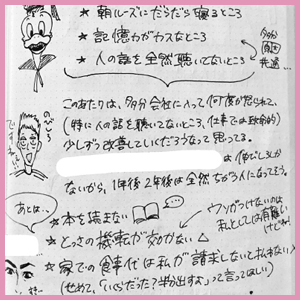 ★ 朝ルーズにだらだら寝るところ
★ 記憶力がカスなところ
★ 人の話を全然聴いてないところ
多分
共通…
このあたりは、多分会社に入って何度か怒られて、
(特に人の話を聴いてないところ、仕事では致命的)
少しずつ改善していくだろうなって思ってる。
は伸びしろしか
ないから、1年後2年後は全然ちがう人になってそう。
のびしろ
ですねぇ
あとは、、
★本を読まない
★とっさの機転が効かない△
ウソがつけないのは
私としては有難い
けどね!
★家での食事代は私が請求しないと払わない
(せめて、「いくらだった?半分出すよ」って言ってほしい)